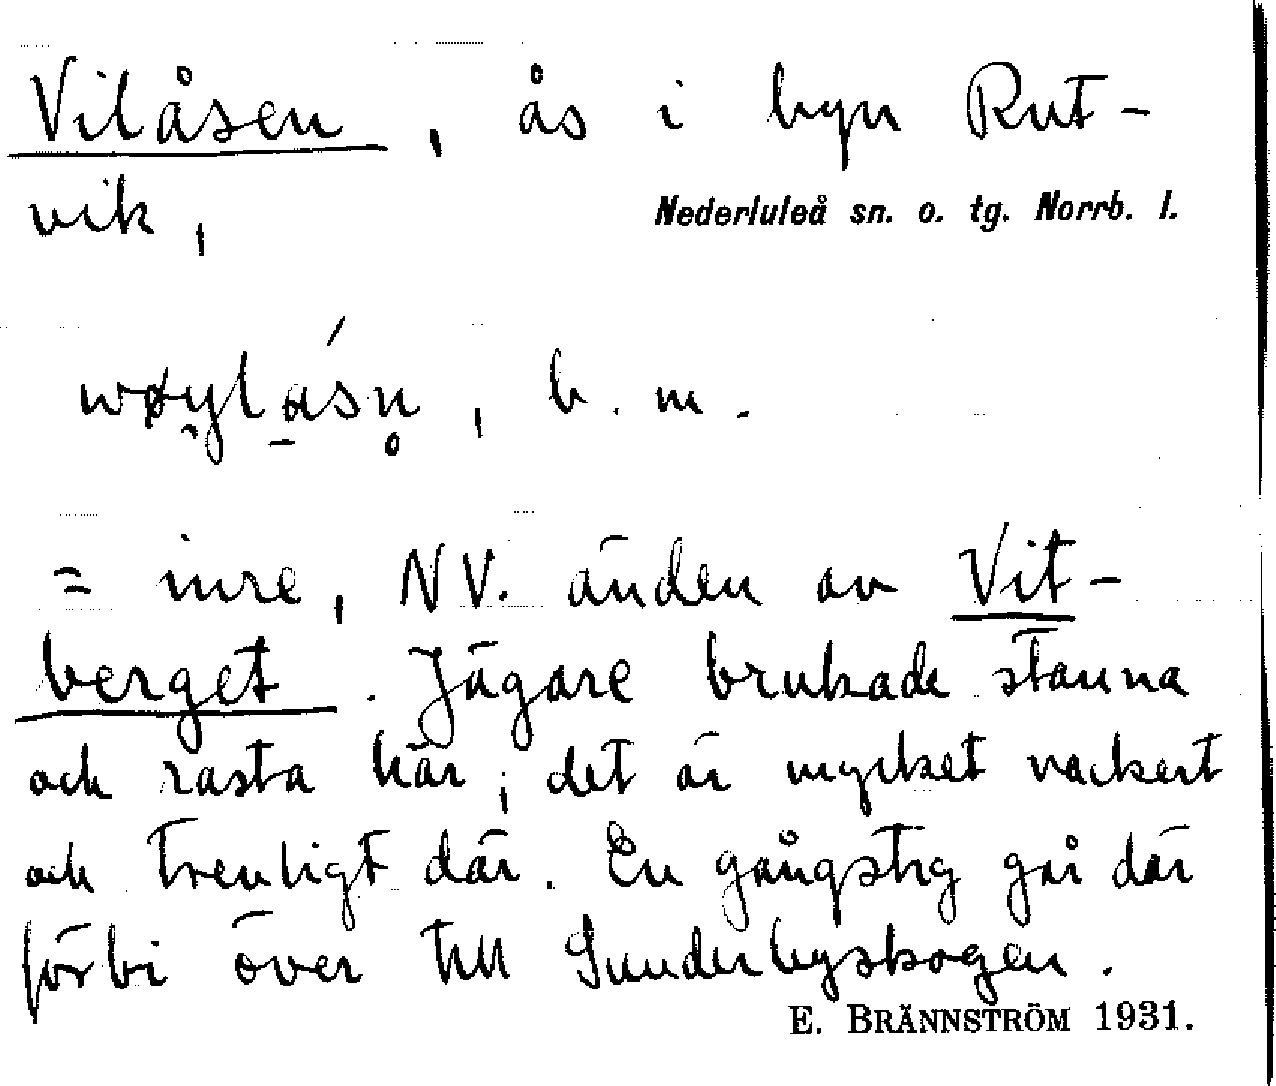 Vilåsen, ås i byn Rut-
vik, Nederluleå sn. o. tg. Norrb. l.
b. m.
= inre, NV. änden av Vit-
berget. Jägare brukade stanna
och rasta här; det är mycket vackert
och trevligt där. En gångstig går där
förbi över till Sunderbyskogen.
E. BRÄNNSTRÖM 1931.